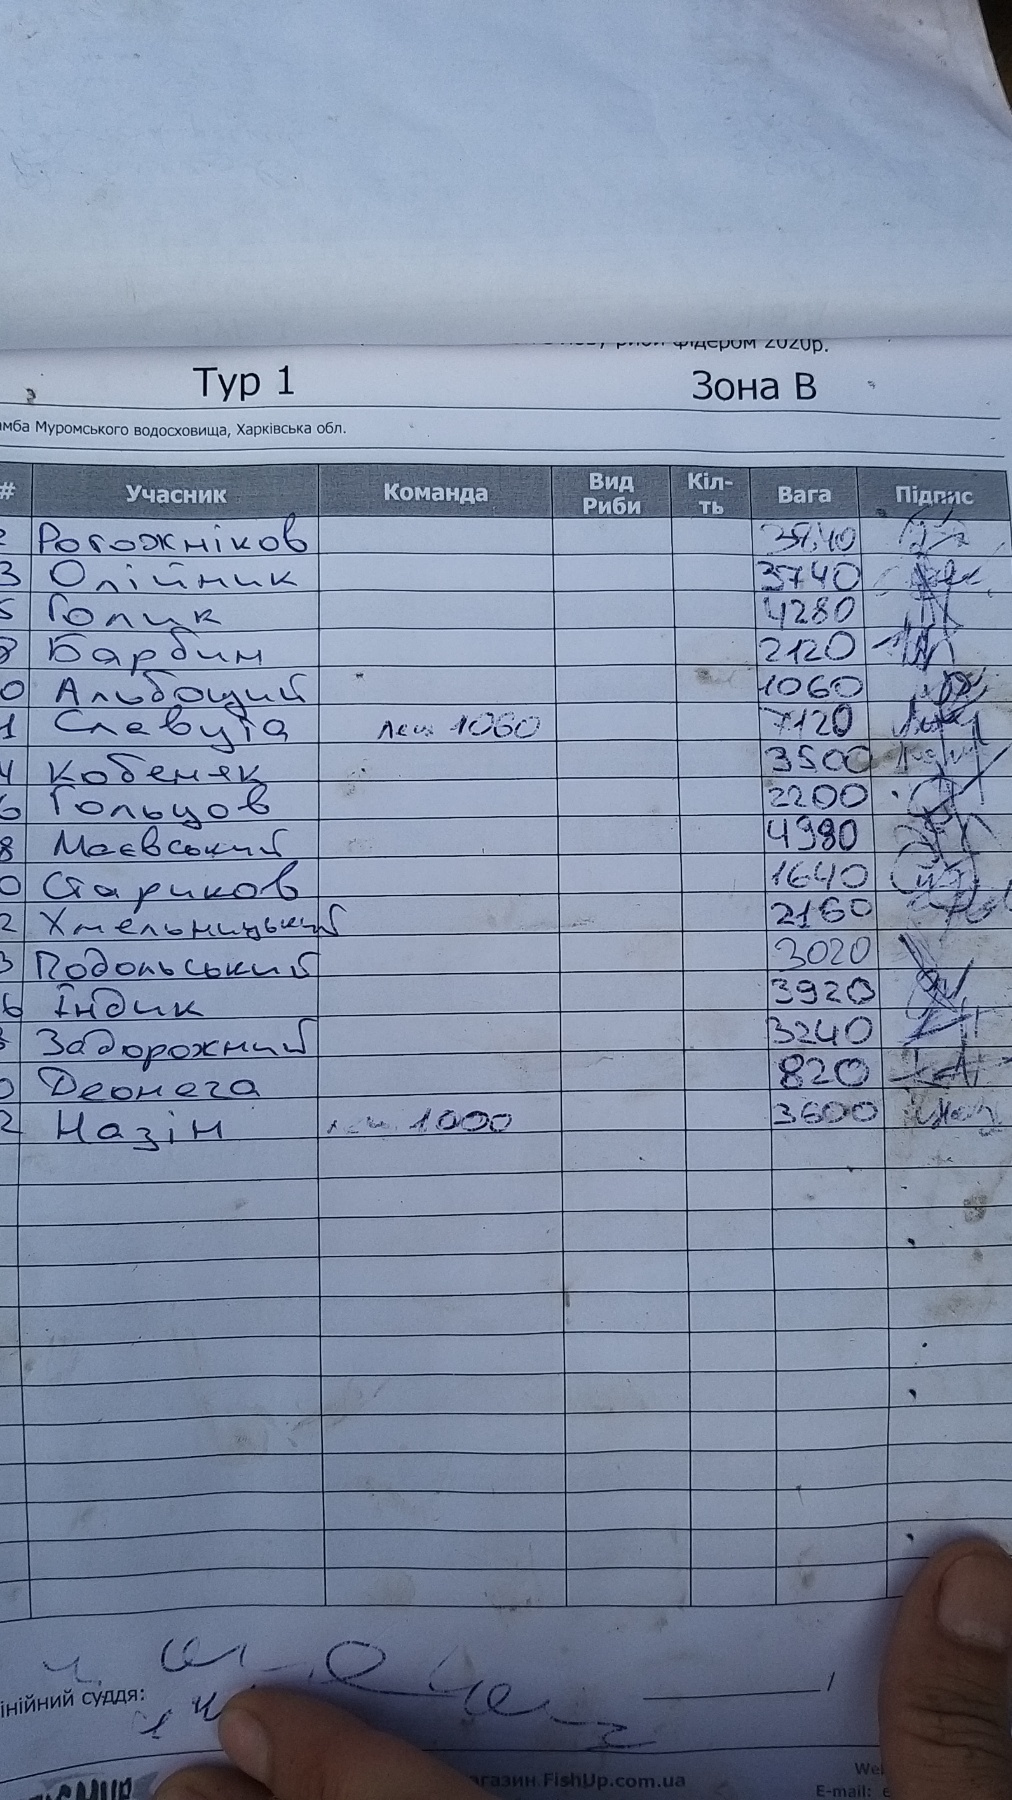 фідером 2020р.
Тур 1 Зона В
Муромського водосховища, Харківська обл.
# Учасник Команда Вид Риби Кіл-ть Вага Підпис
2 Рогожніков
3 Олійник 3740
5 Голик 4280
8 Барбин 2120
0 Альбощий 1060
1 Славута лещ 1060 7120
4 Кобеняк 3500
6 Гольцов 2200
8 Маєвський 4980
0 Стариков 1640
2 Хмельницький 2160
3 Подольський 3020
6 Індик 3920
Задорожний 3240
0 Деонега 820
2 Назін 1000 3600
суддя: /
FishUp.com.ua
E-mail: